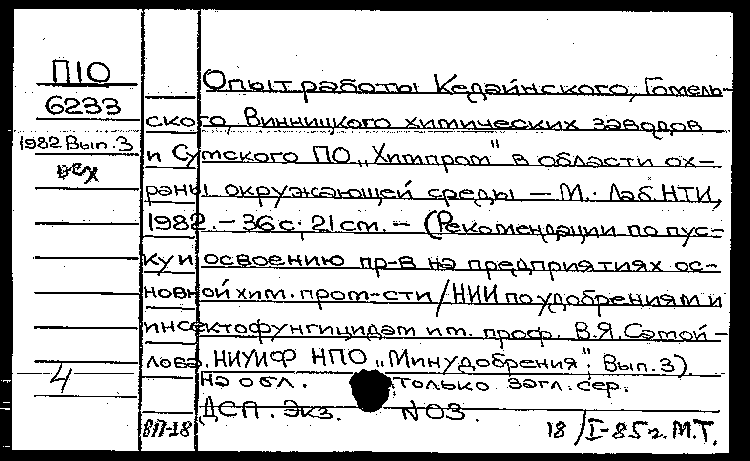 П10
6233
1982 Вып.3
Опыт работы Кедайнского, Гомель-
ского, Винницкого химических заводов
и Сумского ПО „Химпром" в области ох-
раны окружающей среды – М.: Лаб. НТИ,
1982. – 36 с; 21 см. – (Рекомендации по пус-
ку и освоению пр-в на предприятиях ос-
новной хим. пром-сти / НИИ по удобрениям и
инсектофунгицидам им. проф. В.Я. Самой-
лова. НИУИФ НПО „Минудобрения"; Вып. 3).
На обл. только загл. сер.
ДСП. Экз. N 03.
4
ВП-28
18/I-85 г. М.Т.